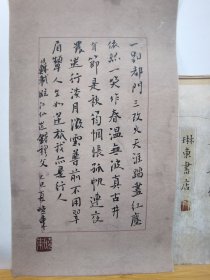 一別都門三改火天涯踏盡紅塵
依然一笑作春溫無波真古井
有節是秋筠惆悵孤帆連夜
發送行淡月微雲尊前不用翠
眉顰人生如逆旅我亦是行人
蘇軾臨江仙送錢穆父
東書店